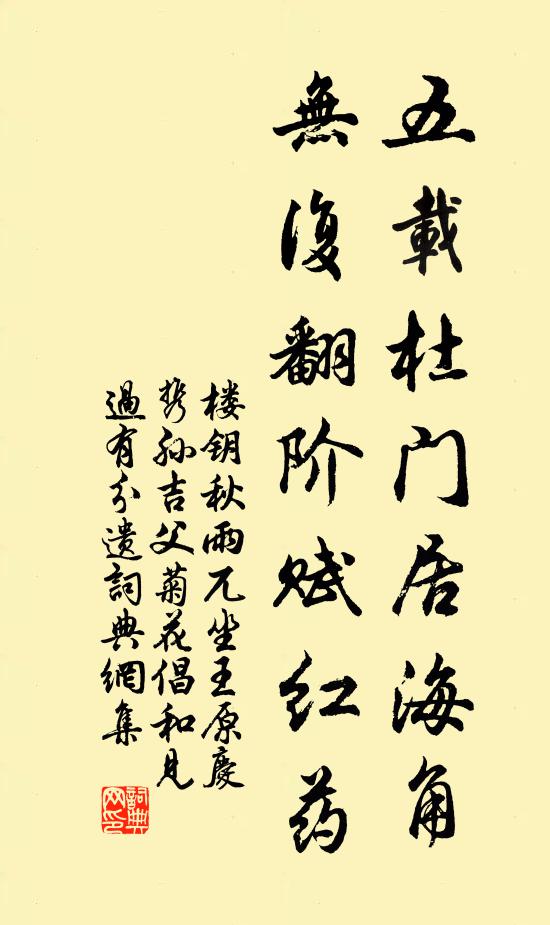 五載杜门居海角
無復翻阶赋红药
楼钥秋雨兀坐王原慶
携孙吉父菊花倡和見
過有分遗詞典網集
詞典网印